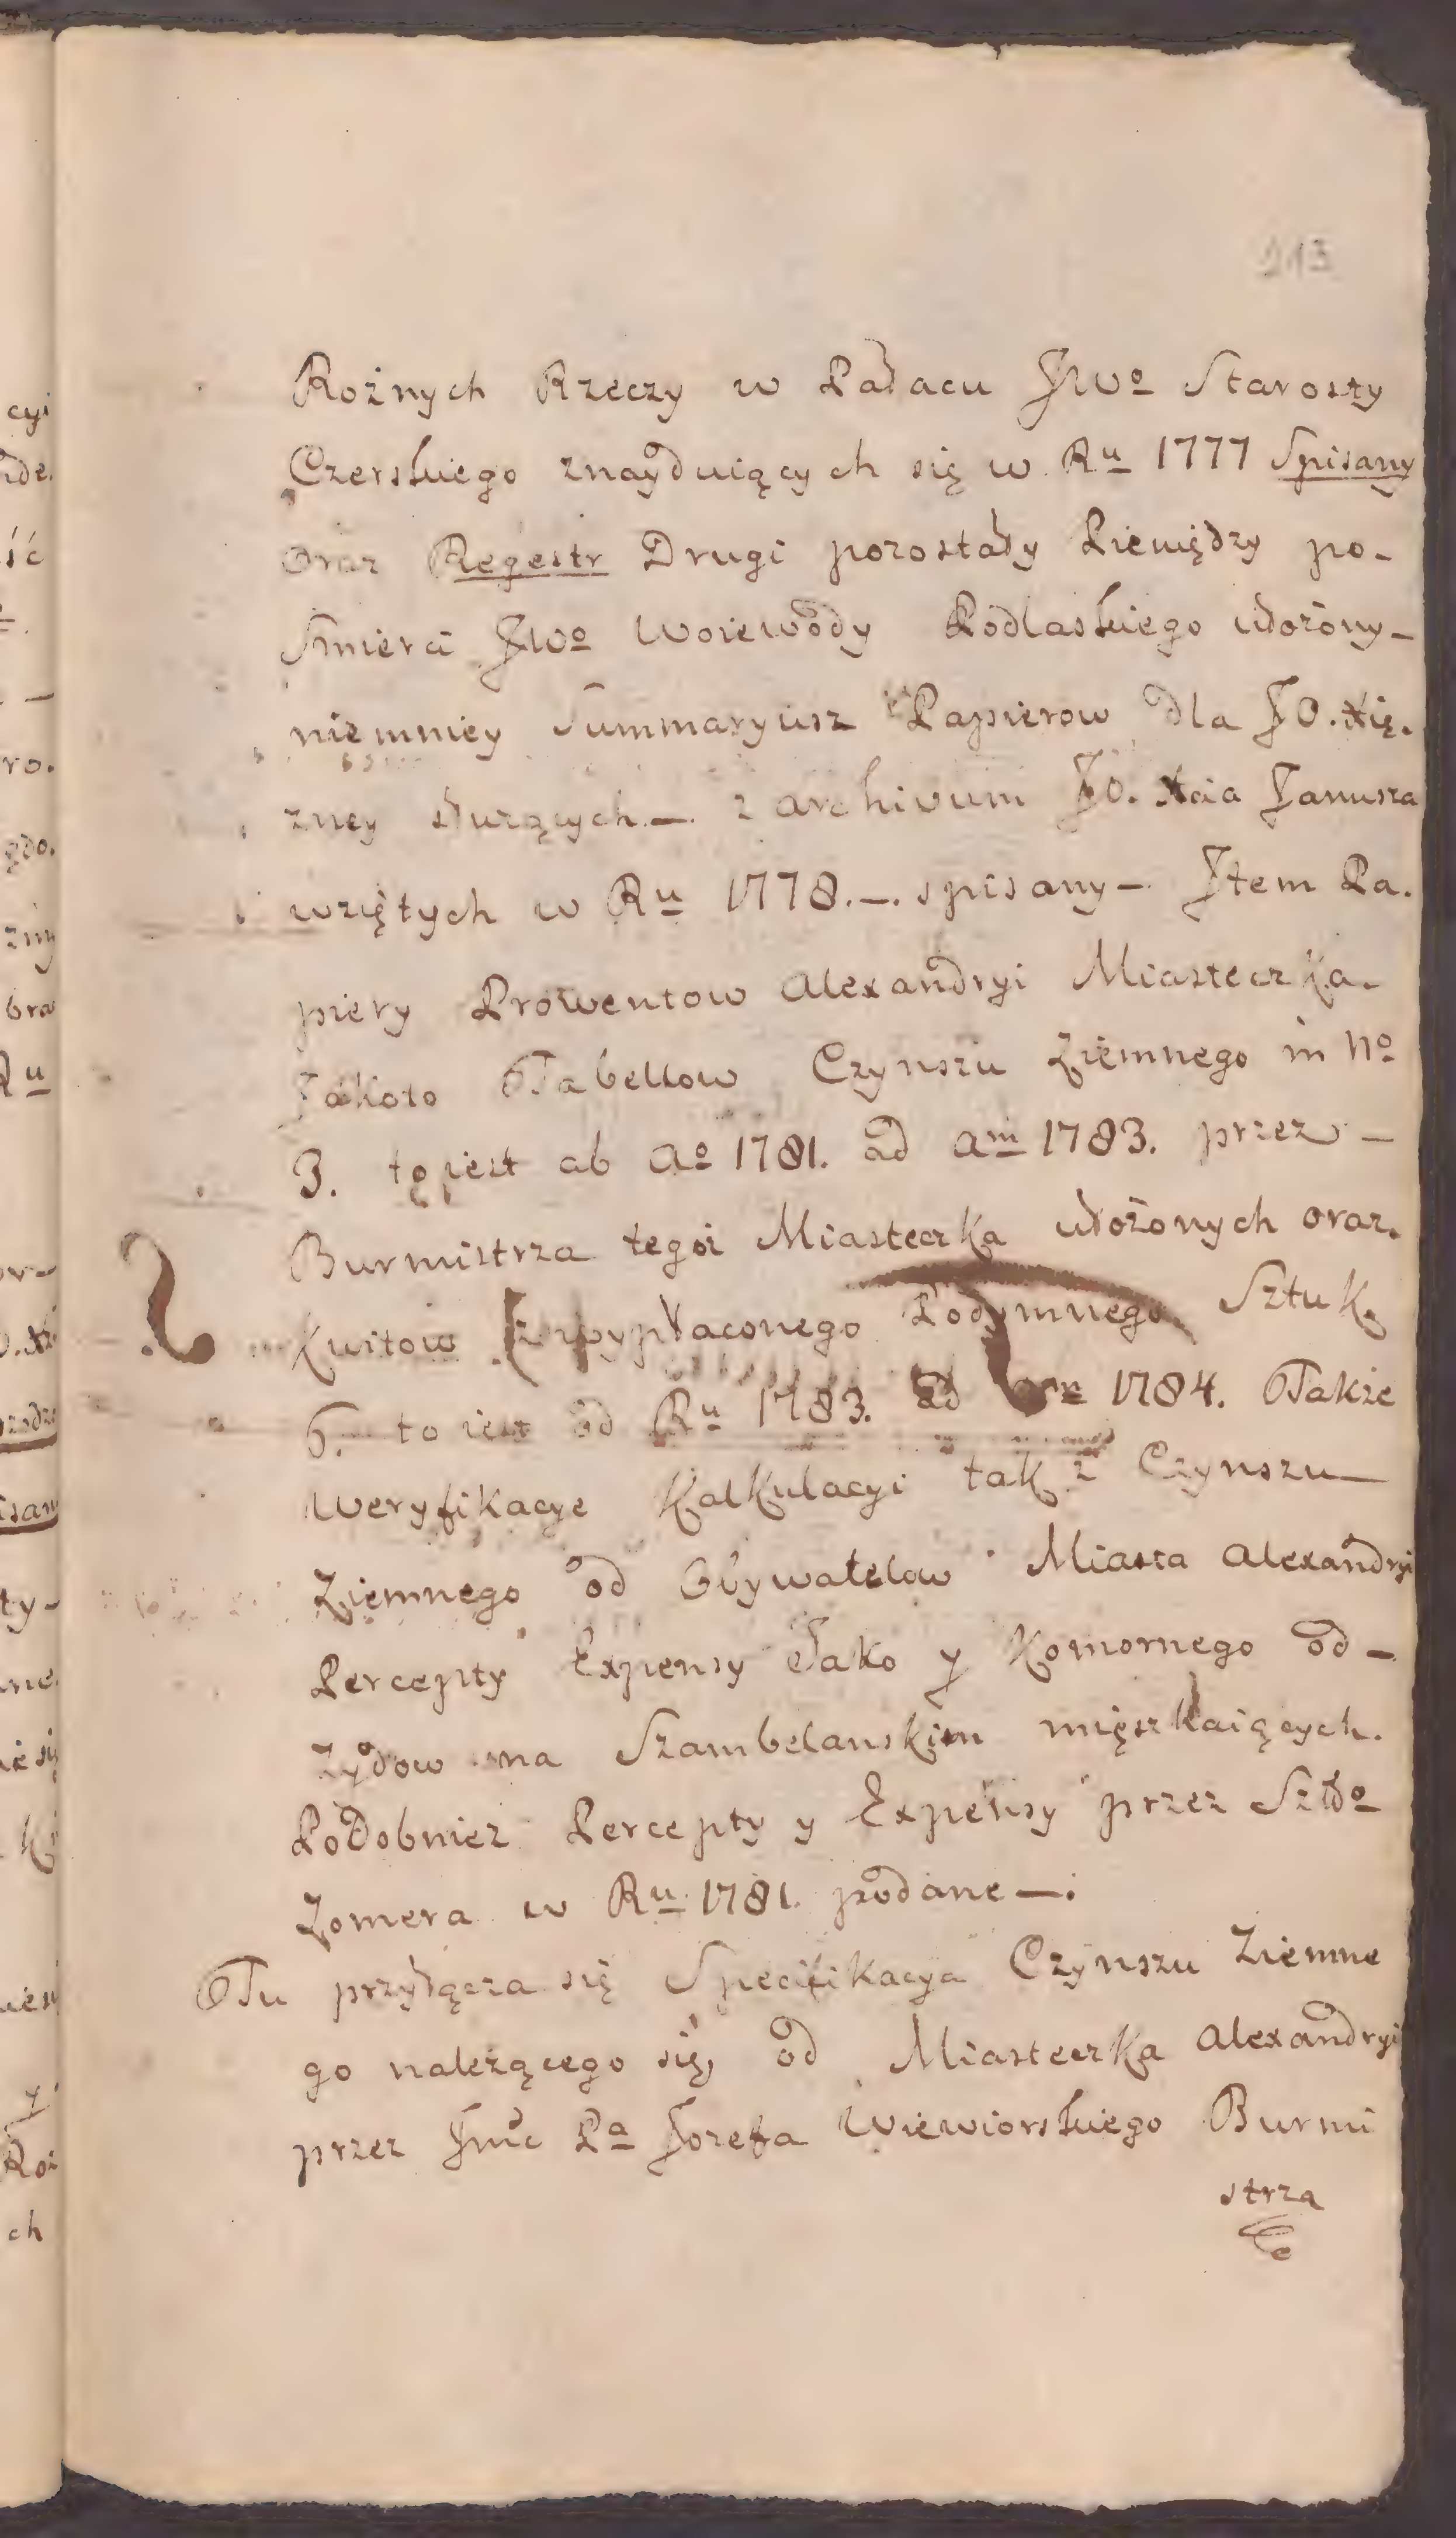 213
Rożnych Rzeczy w Pałacu JWo Starosty
Czerskiego znayduiących się w Ru 1777 Spisany
oraz Regestr Drugi pozostały Pieniędzy po-
Smierci JWo Woiewody Podlaskiego ułożony-
niemniey Summaryusz Papierow dla JO. Xię.
zney służących.—. z archivum JO. Xcia Janusza
wziętych w Ru 1778.—. spisany—. Jtem Pa.
piery Prowentow Alexandryi Miasteczka.
Jakoto Tabellow Czynszu Ziemnego in No
3. to iest ab Ao 1781. ad am 1783. przez —
Burmistrza tegoż Miasteczka ułożonych oraz.
Kwitow z wypłaconego Podymnego Sztuk.
6. to iest od Ru 1783. ad 1784. Także
Weryfikacye Kalkulacyi tak z Czynszu—
Ziemnego od Obywatelow Miasta Alexandryi
Percepty Expensy Jako y Komornego od —
Zydow na Szambelanskim mięszkaiących.
Podobnież Percepty y Expensy przez
Zomera w Ru 1781. podane —.
Tu przyłącza się Specifikacya Czynszu Ziemne
go należącego się od Miasteczka Alexandryi
przez Jmć Pa Jozefa Wiewiorskiego Burmi
strza